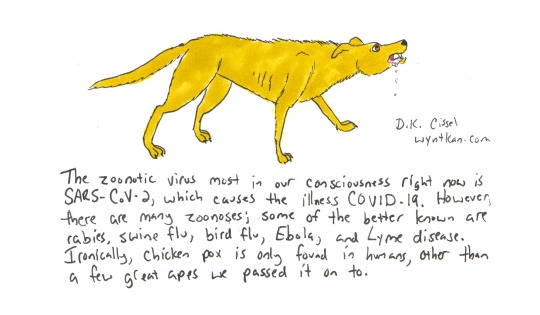 D.K. Cissel
wyntkan.com
The zoonotic virus most in our consciousness right now is
SARS-CoV-2, which causes the illness COVID-19. However,
there are many zoonoses; some of the better known are
rabies, swine flu, bird flu, Ebola, and Lyme disease.
Ironically, chicken pox is only found in humans, other than
a few great apes we passed it on to.